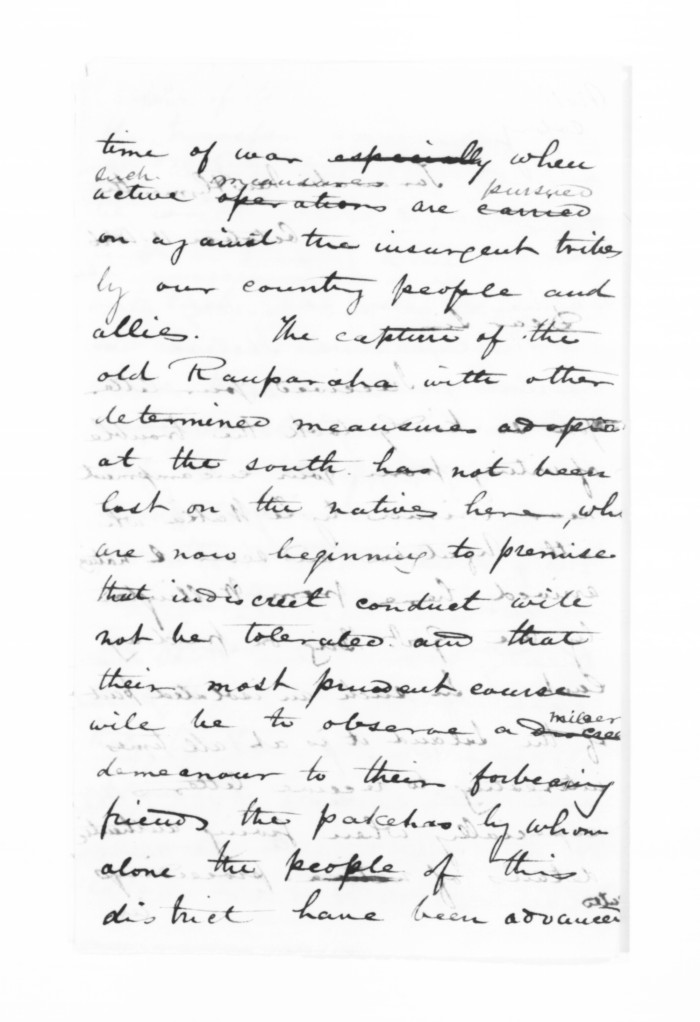 time of war especially when
such measures pursued
active operations are carried
on against the insurgent tribes
by our country people and
allies. The capture of the
old Rauparaha with other
determined measures adopte
at the south has not been
lost on the natives here, who
are now beginning to premise
that indiscreet conduct will
not be tolerated and that
their most prudent course
milder
will be to observe a
demeanour to their forbearing
friends the pakehas by whom
alone the people of this
district have been advanced